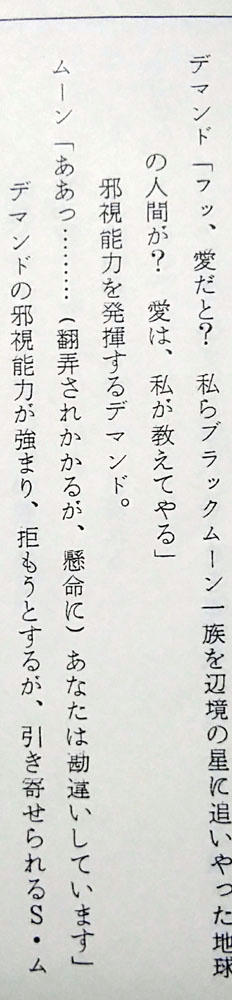 デマンド「フッ、愛だと？　私らブラックムーン一族を辺境の星に追いやった地球
の人間が？　愛は、私が教えてやる」
邪視能力を発揮するデマンド。
ムーン「ああっ………（翻弄されかかるが、懸命に）あなたは勘違いしています」
デマンドの邪視能力が強まり、拒もうとするが、引き寄せられるS・ム